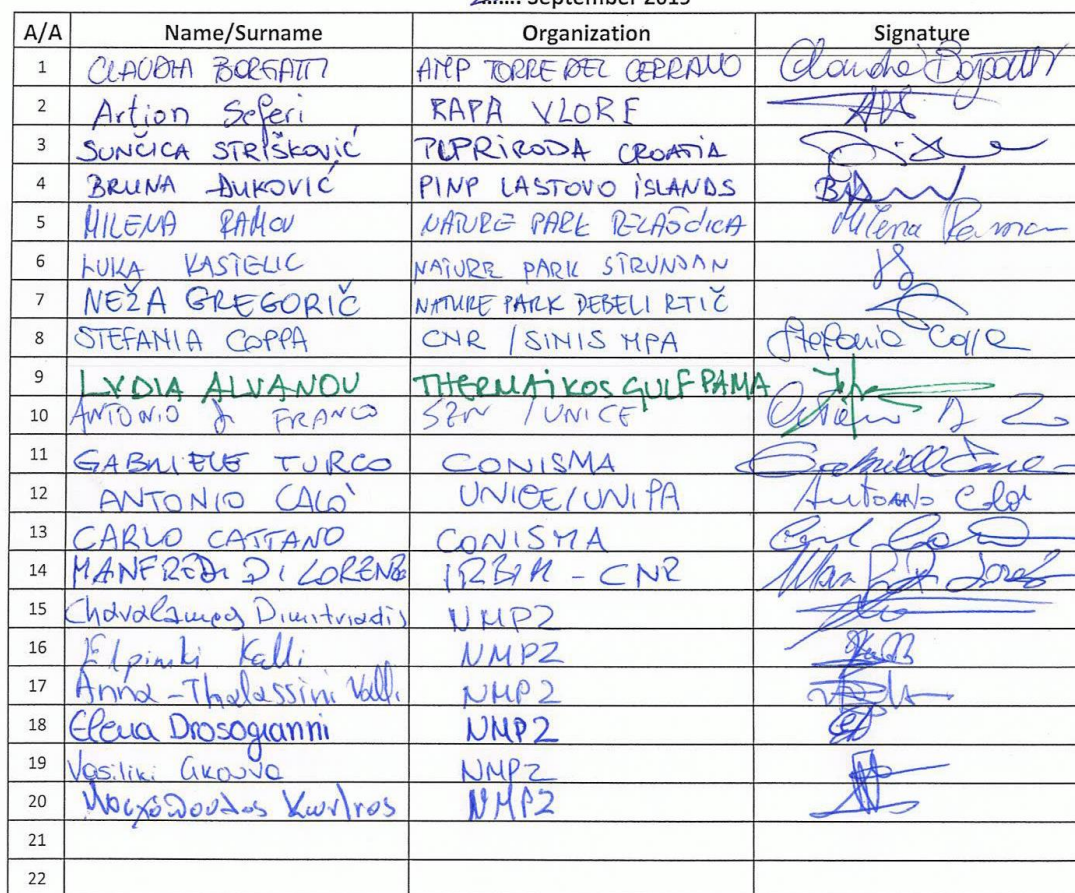 September 2019
A/A Name/Surname Organization Signature
1 CLAUDIA BORGATTI AMP TORRE DEL CERRANO Claudia Borgatti
2 Artion Seferi RAPA VLORE
3 SUNČICA STRIŠKOVIĆ PUPRIRODA CROATIA
4 BRUNA ĐUKOVIĆ PINP LASTOVO ISLANDS
5 MILENA RAMOV NATURE PARK Milena Ramov
6 LUKA KASTELIC NATURE PARK STRUNJAN
7 NEŽA GREGORIČ NATURE PARK DEBELI RTIČ
8 STEFANIA COPPA CNR / SINIS MPA Stefania Coppa
9 LYDIA ALVANOU THERMAIKOS GULF PAMA
10 ANTONIO DI FRANCO SZN / UNICE
11 GABRIELE TURCO CONISMA Gabriele Turco
12 ANTONIO CALÒ UNICE/UNIPA Antonio Calò
13 CARLO CATTANO CONISMA
14 MANFREDI DI LORENZO IRBIM - CNR
15 Charalampos Dimitriadis NMPZ
16 Elpiniki Kalli NMPZ
17 Anna-Thalassini Valli NMPZ
18 Elena Drosogianni NMPZ
19 Vasiliki NMPZ
20 NMPZ
21
22